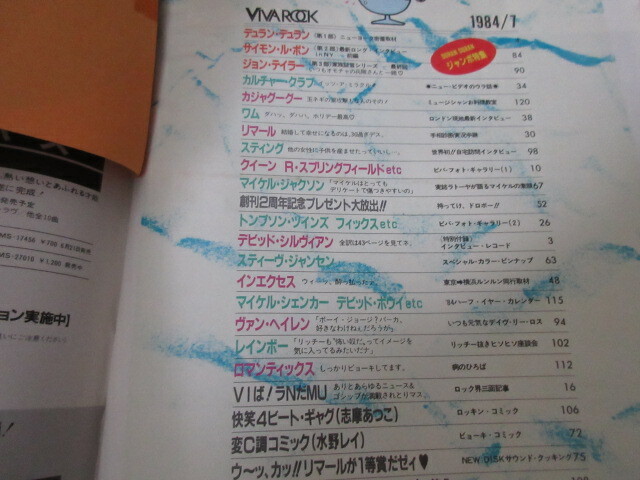 VIVA ROCK
1984/7
デュラン・デュラン (第1部)
サイモン・ル・ボン (第2部) 最新ロングインタビュー in NY 前編
ジャンボ特集 84
ジョン・テイラー (第3部) 90
カルチャー・クラブ ★ニュー・ビデオのウラ話★ 34
カジャグーグー ミュージシャンお料理教室 120
ワム ダハッ、ダハッ、ホリデー最高♡ ロンドン現地最新インタビュー 38
リマール 結婚して幸せになるのは、38過ぎデス。 手相診断実況中継 30
スティング 他の女性に子供を産ませたっていいし… 世界初!!自宅訪問インタビュー 98
クイーン R・スプリングフィールドetc ビバ・フォト・ギャラリー(1) 10
マイケル・ジャクソン 「マイケルはとってもデリケートで傷つきやすいの」 実姉ラトーヤが語るマイケルの素顔 67
創刊2周年記念プレゼント大放出!! 持ってけ、ドロボー!! 52
トンプソン・ツインズ フィックスetc ビバ・フォト・ギャラリー(2) 26
デビッド・シルヴィアン 全訳は43ページを見てネ。 (特別付録) インタビュー・レコード 3
スティーヴ・ジャンセン スペシャル・カラー・ピンナップ 63
インエクセス ウィーッ、酔っ払った。 東京➡横浜ルンルン同行取材 48
マイケル・シェンカー デビッド・ボウイetc '84ハーフ・イヤー・カレンダー 115
ヴァン・ヘイレン 「ボーイ・ジョージ?バーカ、好きなわけねえだろうが」 いつも元気なデイヴ・リー・ロス 94
レインボー 「リッチーも"怖い奴だ"ってイメージを気に入ってるみたいだナ」 リッチー抜きヒソヒソ座談会 102
ロマンティックス しっかりビョーキしてます。 病のひろば 112
VIば!ラNだMU ありとあらゆるニュース&ゴシップが満載されとりマス。 ロック界三面記事 16
快笑4ビート・ギャグ(志摩あつこ) ロッキン・コミック 106
変C調コミック(水野レイ) ビョーキ・コミック 72
ウ〜ッ、カッ!!リマールが1等賞だゼィ♥ NEW DISKサウンド・クッキング 75
熱い想いとあふれる才能
に完成!
発売予定
ラヴ/他全10曲
ョン実施中]